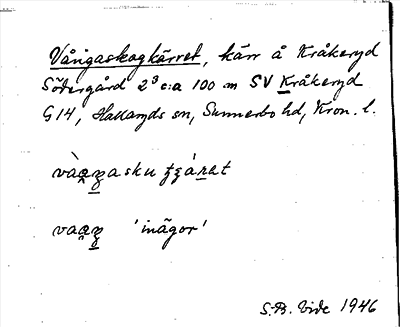 Vångaskogkärret, kärr å Kråkeryd
Södergård 2³ c:a 100 m SV Kråkeryd
G14, Hallaryds sn, Sunnerbo hd, Kron. l.
'inägor'
S.-B. Vide 1946